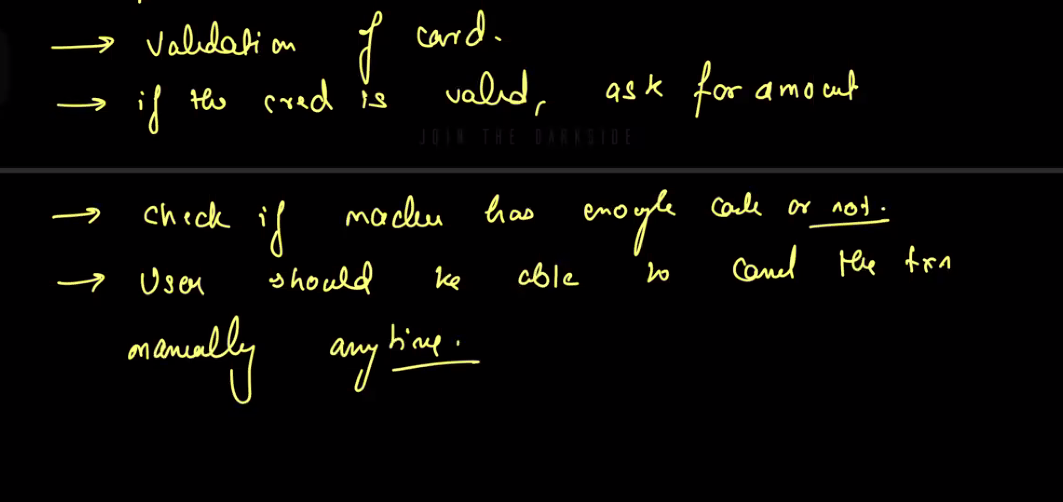 → Validation of card.
→ if the card is valid, ask for amount
JOIN THE DARKSIDE
→ Check if machine has enough cash or not.
→ User should be able to cancel the txn
manually anytime.